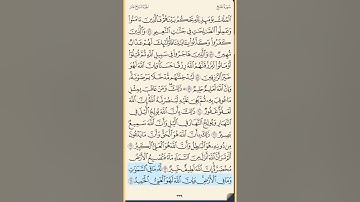 سورة الحج
الجزء السابع عشر
ٱلْمُلْكُ يَوْمَئِذٍ لِّلَّهِ يَحْكُمُ بَيْنَهُمْ فَٱلَّذِينَ ءَامَنُوا۟
وَعَمِلُوا۟ ٱلصَّٰلِحَٰتِ فِى جَنَّٰتِ ٱلنَّعِيمِ ٥٦ وَٱلَّذِينَ
كَفَرُوا۟ وَكَذَّبُوا۟ بِـَٔايَٰتِنَا فَأُو۟لَٰٓئِكَ لَهُمْ عَذَابٌ
مُّهِينٌ ٥٧ وَٱلَّذِينَ هَاجَرُوا۟ فِى سَبِيلِ ٱللَّهِ ثُمَّ قُتِلُوٓا۟
أَوْ مَاتُوا۟ لَيَرْزُقَنَّهُمُ ٱللَّهُ رِزْقًا حَسَنًا وَإِنَّ ٱللَّهَ لَهُوَ
خَيْرُ ٱلرَّٰزِقِينَ ٥٨ لَيُدْخِلَنَّهُم مُّدْخَلًا يَرْضَوْنَهُۥ
وَإِنَّ ٱللَّهَ لَعَلِيمٌ حَلِيمٌ ٥٩ ذَٰلِكَ وَمَنْ عَاقَبَ بِمِثْلِ
مَا عُوقِبَ بِهِۦ ثُمَّ بُغِىَ عَلَيْهِ لَيَنصُرَنَّهُ ٱللَّهُ إِنَّ ٱللَّهَ
لَعَفُوٌّ غَفُورٌ ٦٠ ذَٰلِكَ بِأَنَّ ٱللَّهَ يُولِجُ ٱلَّيْلَ فِى
ٱلنَّهَارِ وَيُولِجُ ٱلنَّهَارَ فِى ٱلَّيْلِ وَأَنَّ ٱللَّهَ سَمِيعٌۢ
بَصِيرٌ ٦١ ذَٰلِكَ بِأَنَّ ٱللَّهَ هُوَ ٱلْحَقُّ وَأَنَّ مَا يَدْعُونَ
مِن دُونِهِۦ هُوَ ٱلْبَٰطِلُ وَأَنَّ ٱللَّهَ هُوَ ٱلْعَلِىُّ ٱلْكَبِيرُ ٦٢
أَلَمْ تَرَ أَنَّ ٱللَّهَ أَنزَلَ مِنَ ٱلسَّمَآءِ مَآءً فَتُصْبِحُ ٱلْأَرْضُ
مُخْضَرَّةً إِنَّ ٱللَّهَ لَطِيفٌ خَبِيرٌ ٦٣ لَّهُۥ مَا فِى ٱلسَّمَٰوَٰتِ
وَمَا فِى ٱلْأَرْضِ وَإِنَّ ٱللَّهَ لَهُوَ ٱلْغَنِىُّ ٱلْحَمِيدُ ٦٤
٣٣٩